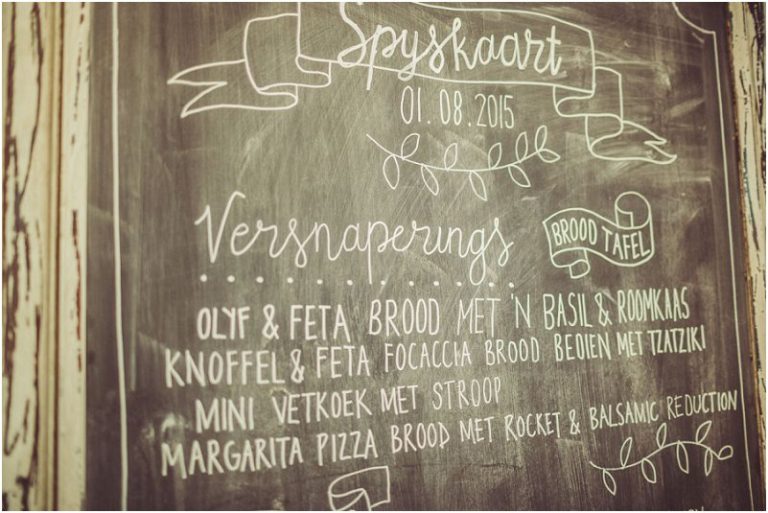 Spyskaart
01.08.2015
Versnaperings
BROOD TAFEL
OLYF & FETA BROOD MET 'N BASIL & ROOMKAAS
KNOFFEL & FETA FOCACCIA BROOD BEDIEN MET TZATZIKI
MINI VETKOEK MET STROOP
MARGARITA PIZZA BROOD MET ROCKET & BALSAMIC REDUCTION